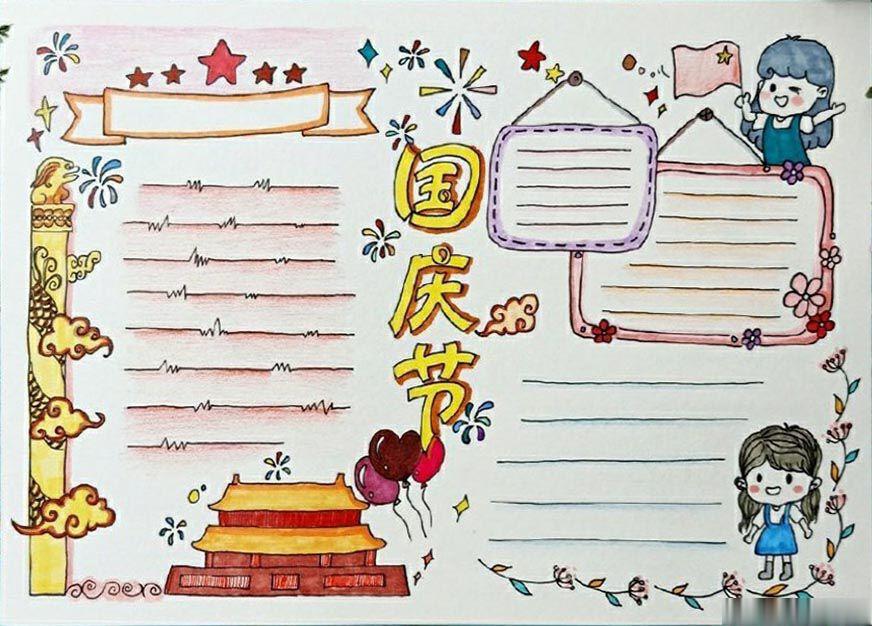 国庆节